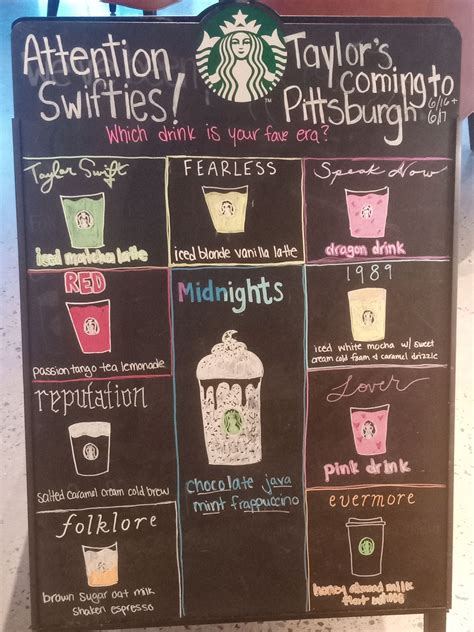 Attention
Swifties!
Taylor's
coming to
Pittsburgh
6/16 +
6/17
Which drink is your fave era?
Taylor Swift
iced matcha latte
FEARLESS
iced blonde vanilla latte
Speak Now
dragon drink
RED
passion tango tea lemonade
Midnights
chocolate java
mint frappuccino
1989
iced white mocha w/ sweet
cream cold foam & caramel drizzle
reputation
salted caramel cream cold brew
Lover
pink drink
folklore
brown sugar oat milk
shaken espresso
evermore
honey almond milk
flat white